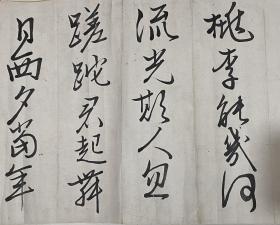 桃李能幾何
流光欺人忽
蹉跎君起舞
日西夕當年